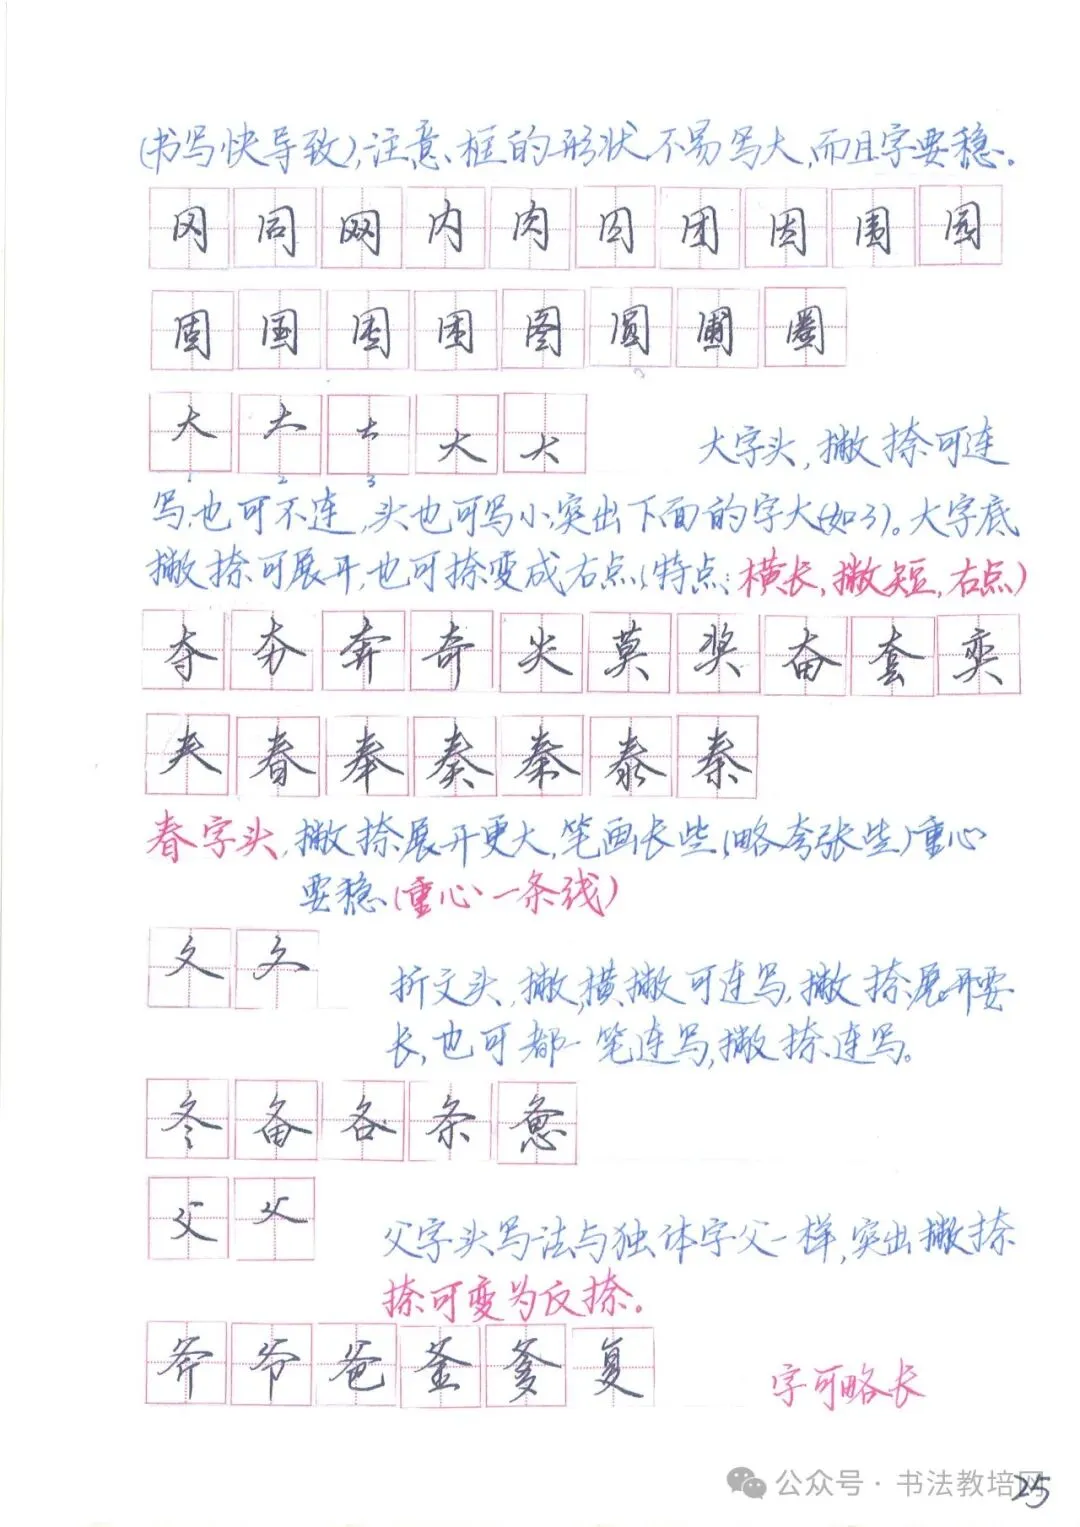 (书写快导致),注意、框的形状.不易写大,而且字要稳。
冈 同 网 内 肉 囚 团 因 围 园
固 国 困 图 圆 圃 圈
大 大 大 大 大
1 2 3
大字头,撇捺可连
写,也可不连,头也可写小,突出下面的字大(如3)。大字底
撇捺可展开,也可捺变成右点(特点:横长,撇短,右点)
夺 夯 奔 奇 尖 莫 奖 奋 套 奕
夹 春 奉 奏 秦 泰 秦
春字头,撇捺展开更大,笔画长些,(略夸张些)重心
要稳(重心一条线)
夂 夂
折文头,撇,横撇可连写,撇捺展开要
长,也可都一笔连写,撇捺连写。
冬 备 各 条 惫
父 父
父字头写法与独体字父一样,突出撇捺
捺可变为反捺。
斧 爷 爸 釜 爹 复
字可略长
公众号·书法教培网
25